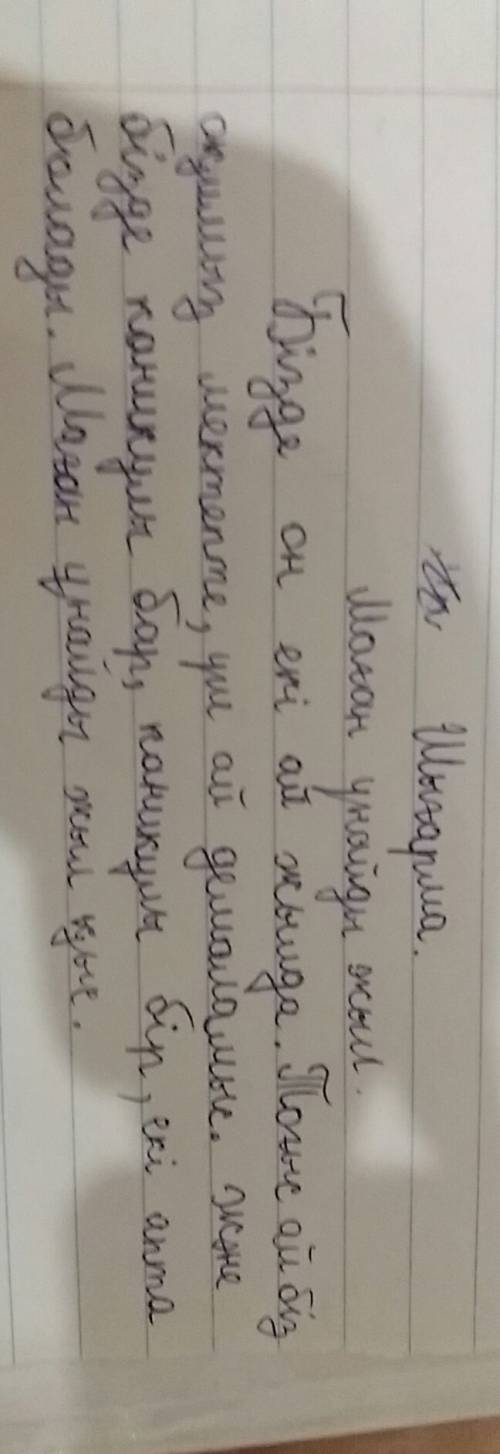 Шығарма.
Маған ұнайды жыл.
Бізде он екі ай жылда. Тоғыс ай біз
оқимыз мектепте, үш ай демаламыс. және
бізде каникулы бар, каникулы бір, екі апта
болады. Маған ұнайды жыл қыс.